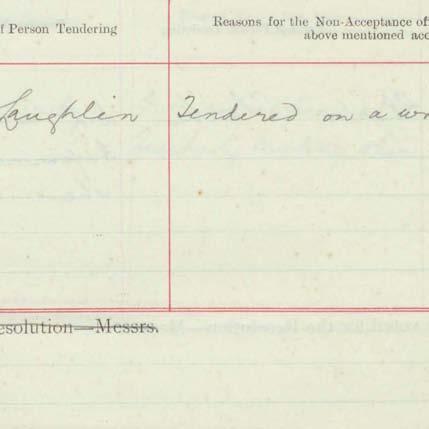 f Person Tendering
Reasons for the Non-Acceptance of
above mentioned acc
Laughlin
Tendered on a wr
esolution—Messrs.